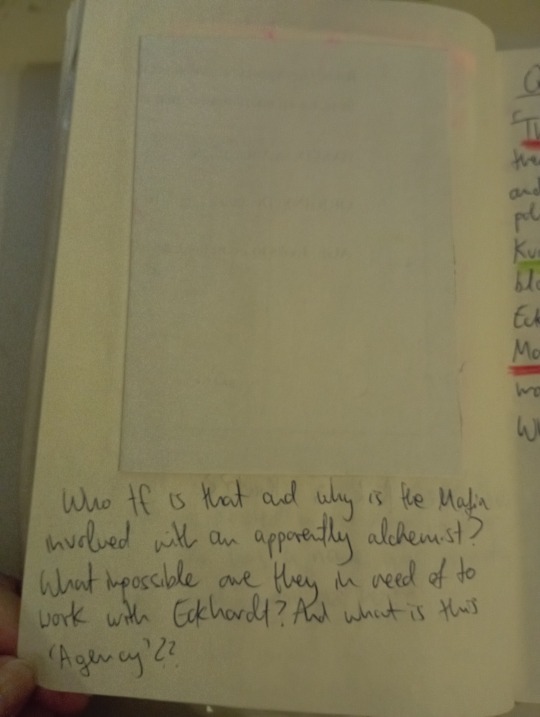 Who tf is that and why is the Mafia
involved with an apparently alchemist?
What impossible are they in need of to
work with Eckhardt? And what is this
'Agency'??